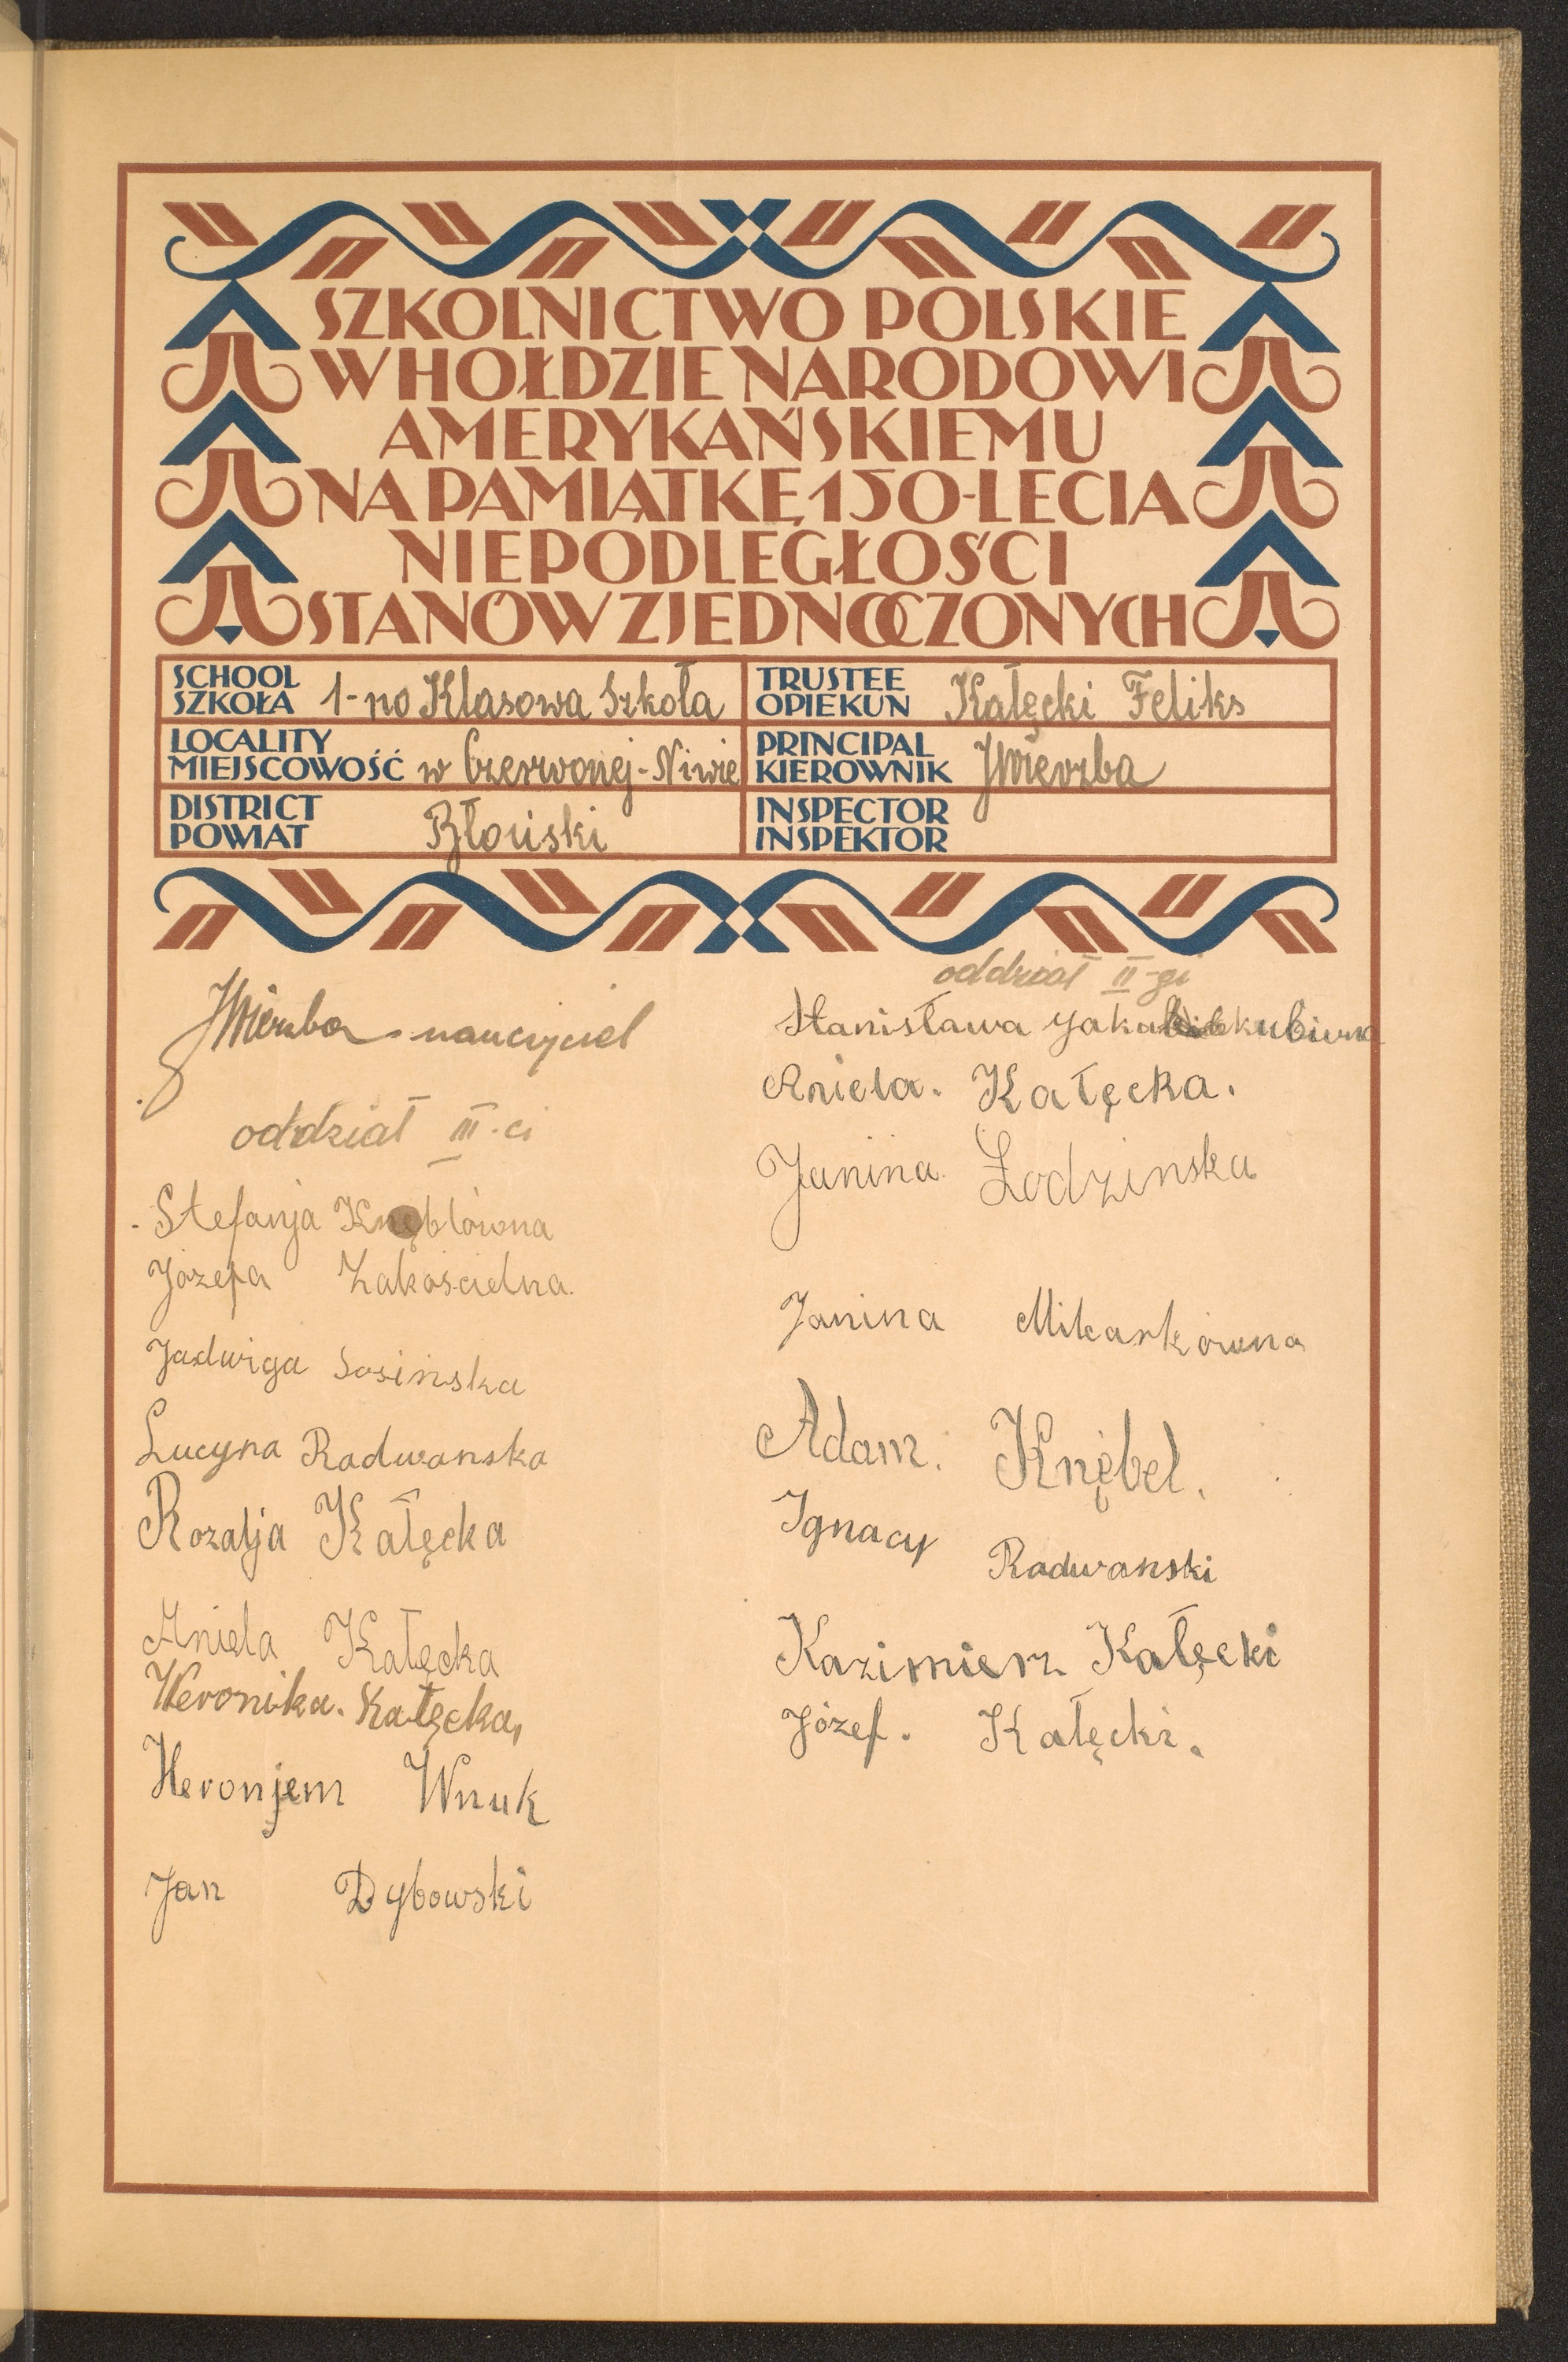 SZKOLNICTWO POLSKIE
W HOŁDZIE NARODOWI
AMERYKAŃSKIEMU
NA PAMIĄTKĘ 150-LECIA
NIEPODLEGŁOŚCI
STANÓW ZJEDNOCZONYCH
SCHOOL
SZKOŁA 1-no Klasowa Szkoła
TRUSTEE
OPIEKUN Kałęcki Feliks
LOCALITY
MIEJSCOWOŚĆ w Czerwonej-Niwie
PRINCIPAL
KIEROWNIK JWierzba
DISTRICT
POWIAT Błoński
INSPECTOR
INSPEKTOR
JWierzba - nauczyciel
oddział III-ci
Stefanja Knęblówna
Józefa Zakościelna.
Jadwiga Sosińska
Lucyna Radwanska
Rozalja Kałęcka
Aniela Kałęcka
Weronika. Kałęcka,
Heronjem Wnuk
Jan Dybowski
oddział II-gi
Stanisława
Aniela. Kałęcka.
Janina Łodzinska
Janina
Adam. Knębel.
Ignacy Radwanski
Kazimierz Kałęcki
Józef. Kałęcki.